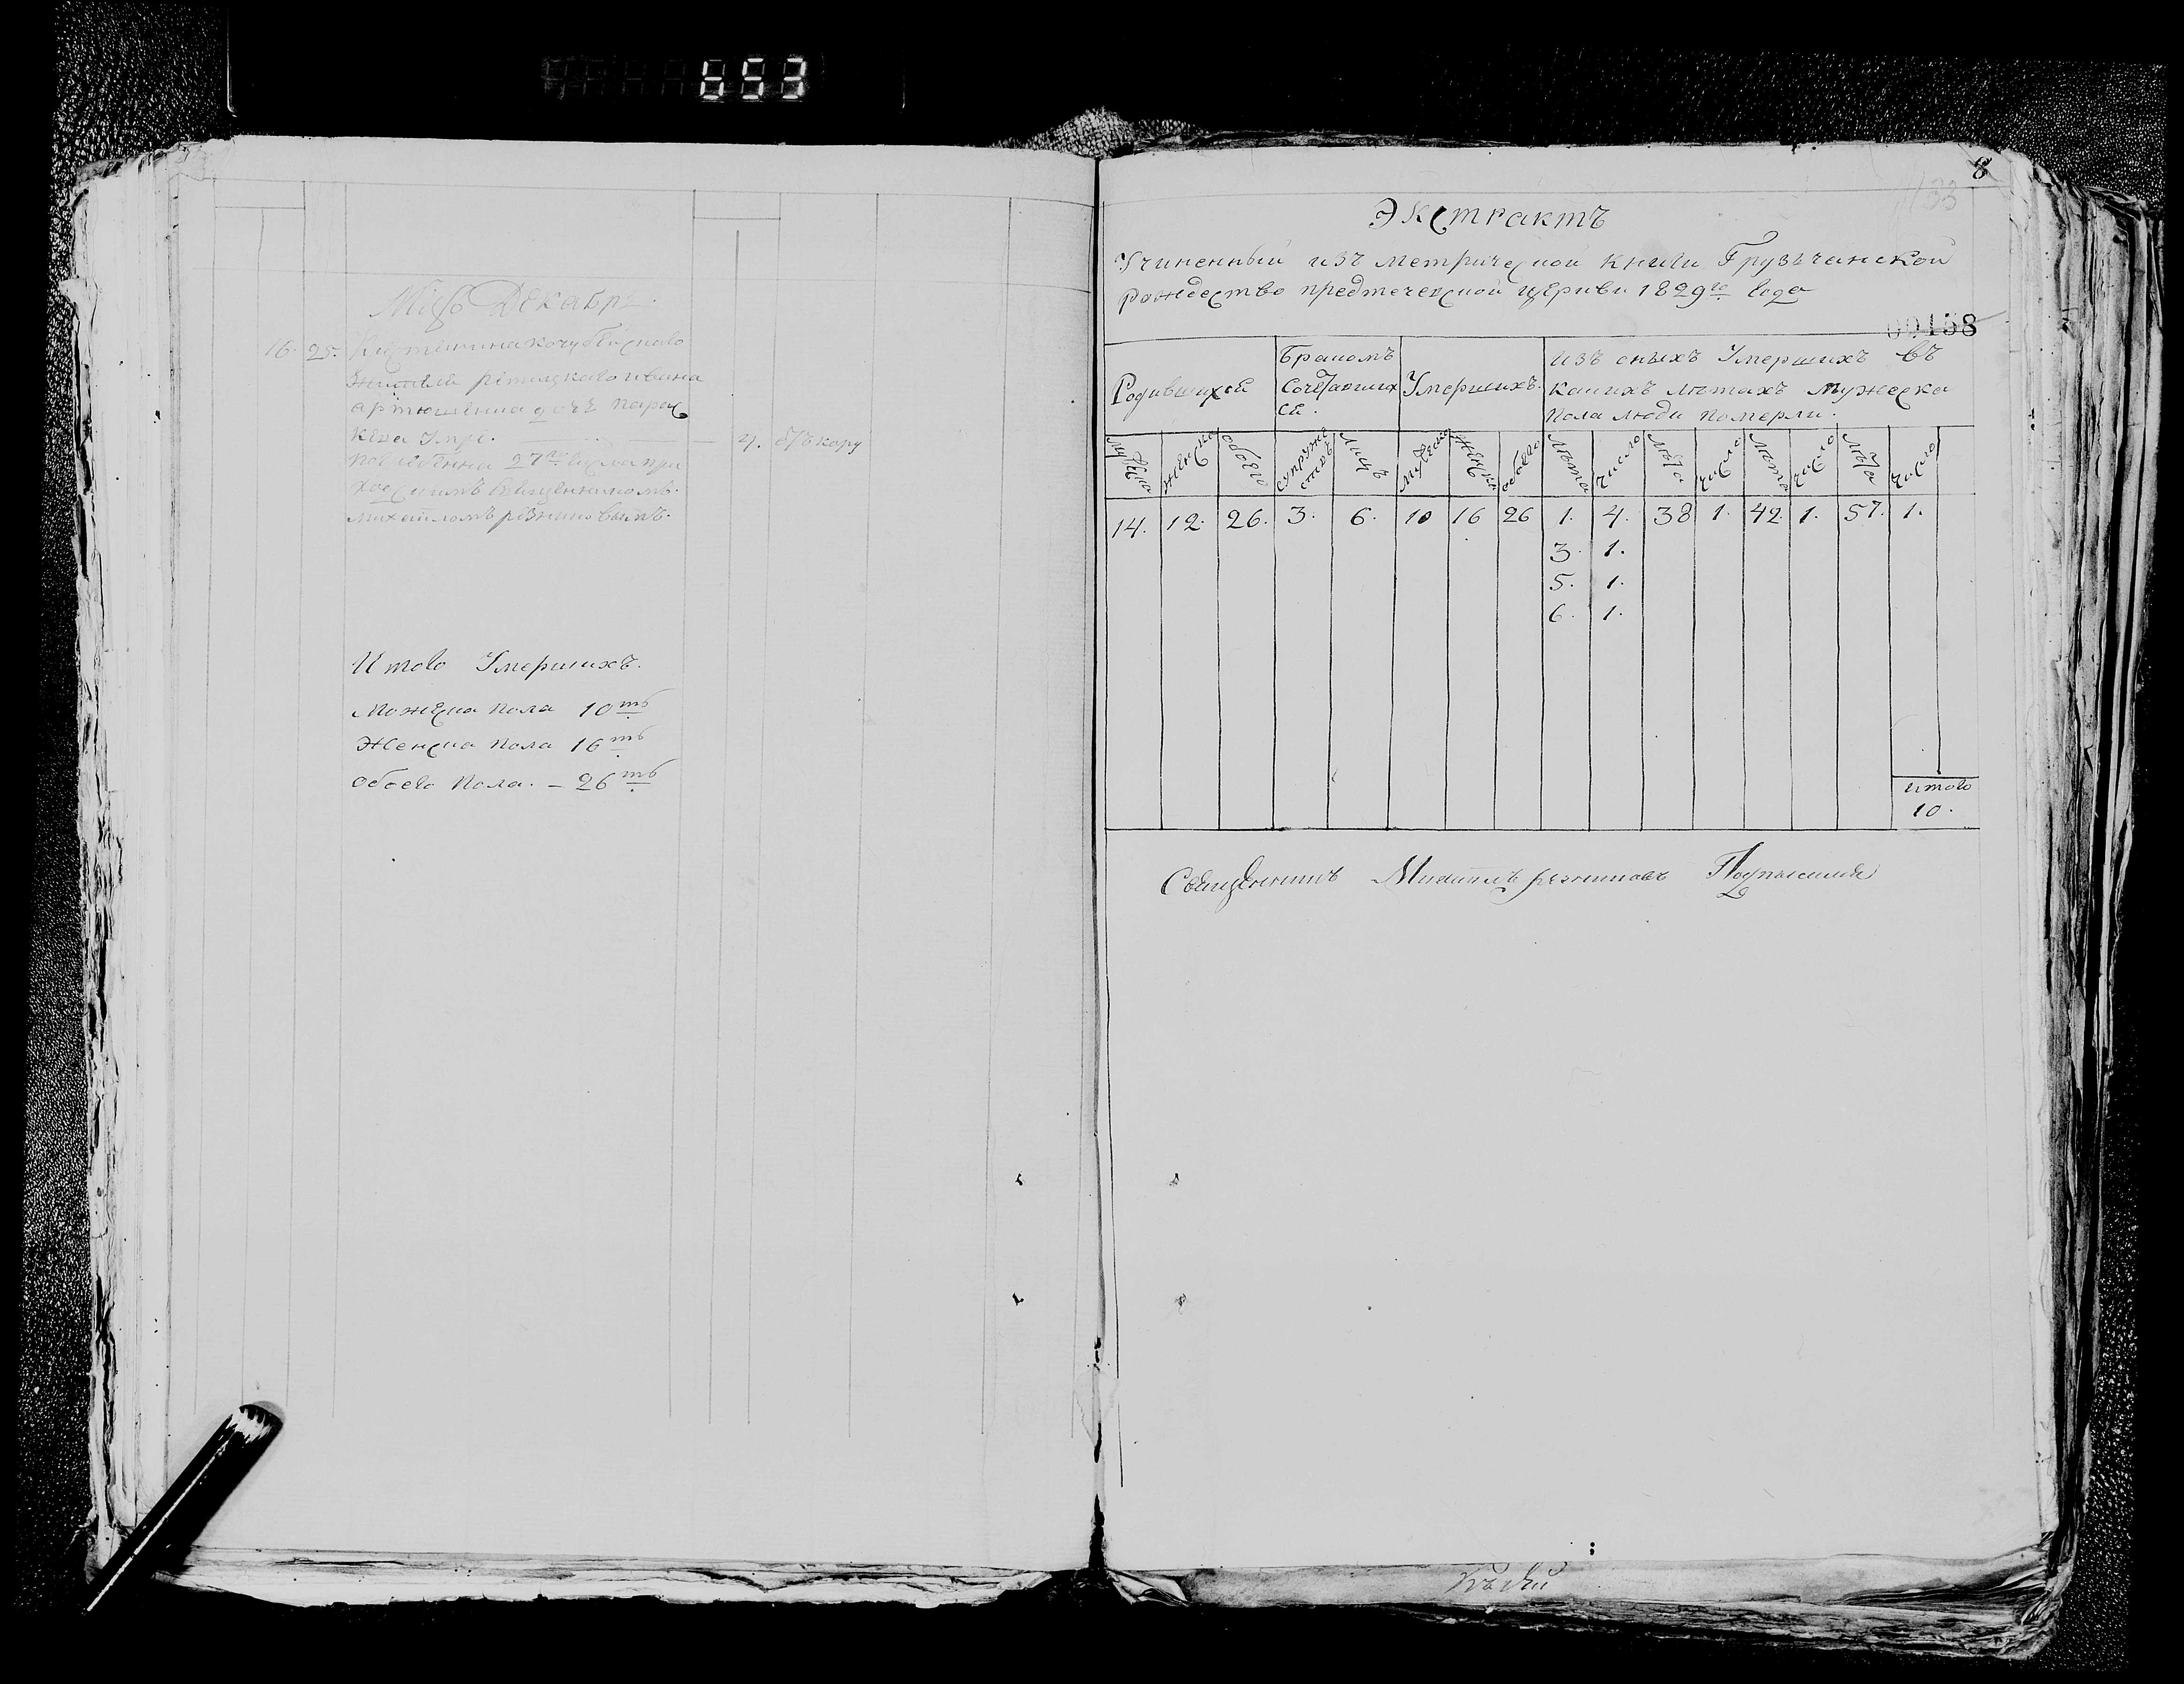 653
Мцъ Декабрь.
16. 25. Кистинина кочубейскаго
жителя репицкаго ивана
артюшенка дочь Парас
кева Умре. — 4. Отъ кору
Погребенна 27го числа при
ходскимъ священникомъ
михаиломъ резниковымъ.
Итого Умершихъ.
Можеска пола 10ть
Женска пола 16ть
Обоего пола. – 26ть
8
Экстрактъ
Учиненный изъ метрической книги Грузчанской
рождество предтеческой церкви 1829го года
00138
Родившихся
Бракомъ Сочетавшихся.
Умершихъ.
Изъ оныхъ Умершихъ въ
какихъ летахъ мужеска
пола люди померли.
мужска женска обоего супружествъ лицъ мужеска женска обоего лета число лета число лета число лета число
14. 12. 26. 3. 6. 10 16 26 1. 4. 38 1. 42. 1. 57. 1.
3. 1.
5. 1.
6. 1.
итого
10.
Священникъ Михаилъ резниковъ Подписалъ